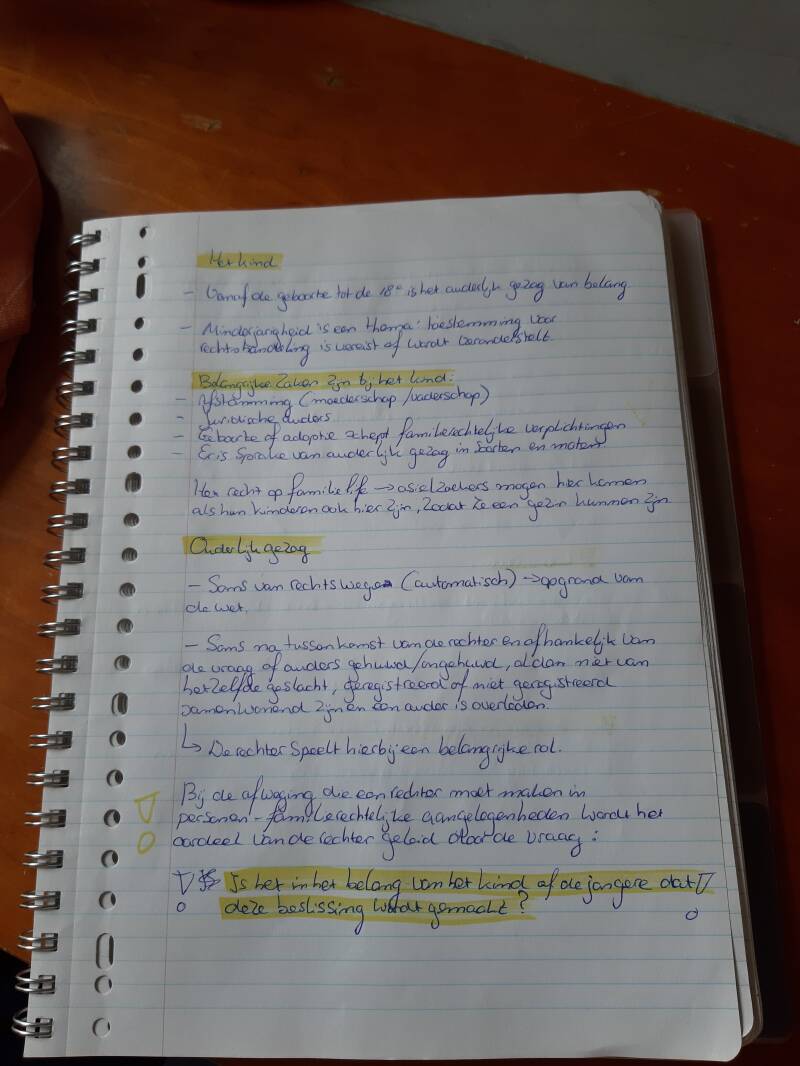 Het kind
- Vanaf de geboorte tot de 18e is het ouderlijk gezag van belang.
- Minderjarigheid is een thema: toestemming voor
rechtshandeling is vereist of wordt verondersteld.
Belangrijke zaken zijn bij het kind:
- Afstamming (moederschap/vaderschap)
- Juridische ouders
- Geboorte of adoptie schept familierechtelijke verplichtingen
- Er is sprake van ouderlijk gezag in soorten en maten.
Het recht op familielife → asielzoekers mogen hier komen
als hun kinderen ook hier zijn, zodat ze een gezin kunnen zijn
Ouderlijk gezag
- Soms van rechtswege (automatisch) → op grond van
de wet.
- Soms na tussenkomst van de rechter en afhankelijk van
de vraag of ouders gehuwd/ongehuwd, al dan niet van
hetzelfde geslacht, geregistreerd of niet geregistreerd
samenwonend zijn en een ouder is overleden.
↳ De rechter speelt hierbij een belangrijke rol.
Bij de afweging die een rechter moet maken in
personen-familierechtelijke aangelegenheden wordt het
oordeel van de rechter geleid door de vraag:
! Is het in het belang van het kind of de jongere dat !
deze beslissing wordt gemaakt?